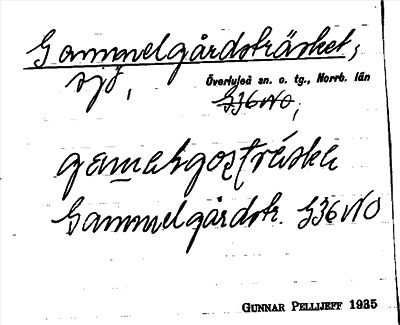 Gammelgårdsträsket,
sjö, Överluleå sn. o. tg., Norrb. län
S36NO,
gamelgostráske
Gammelgårdstr. S36NO
GUNNAR PELLIJEFF 1935